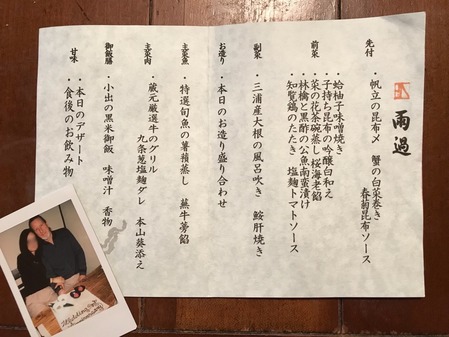 雨過
先付
・帆立の昆布〆 蟹の白菜巻き
春菊昆布ソース
前菜
・蛤柚子味噌焼き
・子持ち昆布の吟醸白和え
・菜の花茶碗蒸し 桜海老餡
・林檎と黒酢の公魚南蛮漬け
・知覧鶏のたたき 塩麹トマトソース
副菜
・三浦産大根の風呂吹き 鮟肝焼き
お造り
・本日のお造り盛り合わせ
主菜魚
・特選旬魚の薯蕷蒸し 蕪牛蒡餡
主菜肉
・蔵元厳選牛のグリル
九条葱塩麹ダレ 本山葵添え
御飯膳
・小出の黒米御飯 味噌汁 香物
甘味
・本日のデザート
・食後のお飲み物